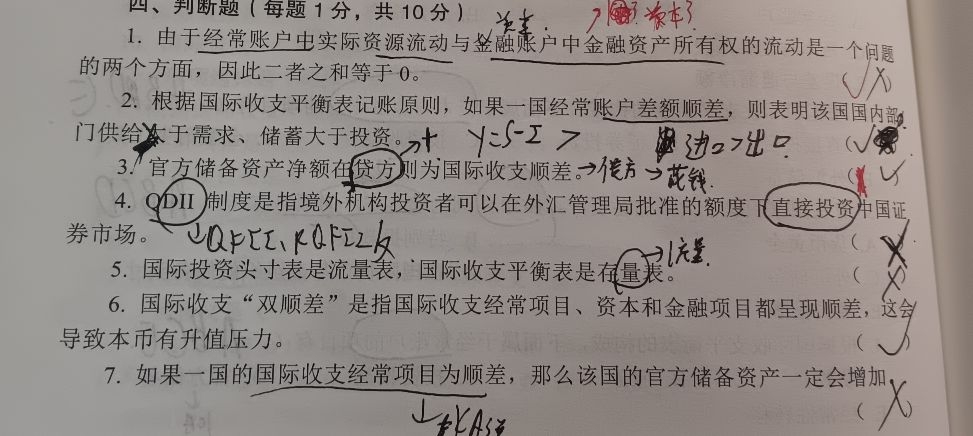 四、判断题（每题1分，共10分）
资本
1. 由于经常账户中实际资源流动与金融账户中金融资产所有权的流动是一个问题
的两个方面，因此二者之和等于0。
2. 根据国际收支平衡表记账原则，如果一国经常账户差额顺差，则表明该国国内部
门供给大于需求、储蓄大于投资。
进口>出口
3. 官方储备资产净额在贷方则为国际收支顺差。→借方→花钱
4. QDII制度是指境外机构投资者可以在外汇管理局批准的额度下直接投资中国证
券市场。
↓QFII、RQFII
→流量
5. 国际投资头寸表是流量表，国际收支平衡表是存量表。
6. 国际收支“双顺差”是指国际收支经常项目、资本和金融项目都呈现顺差，这会
导致本币有升值压力。（√）
7. 如果一国的国际收支经常项目为顺差，那么该国的官方储备资产一定会增加
（×）